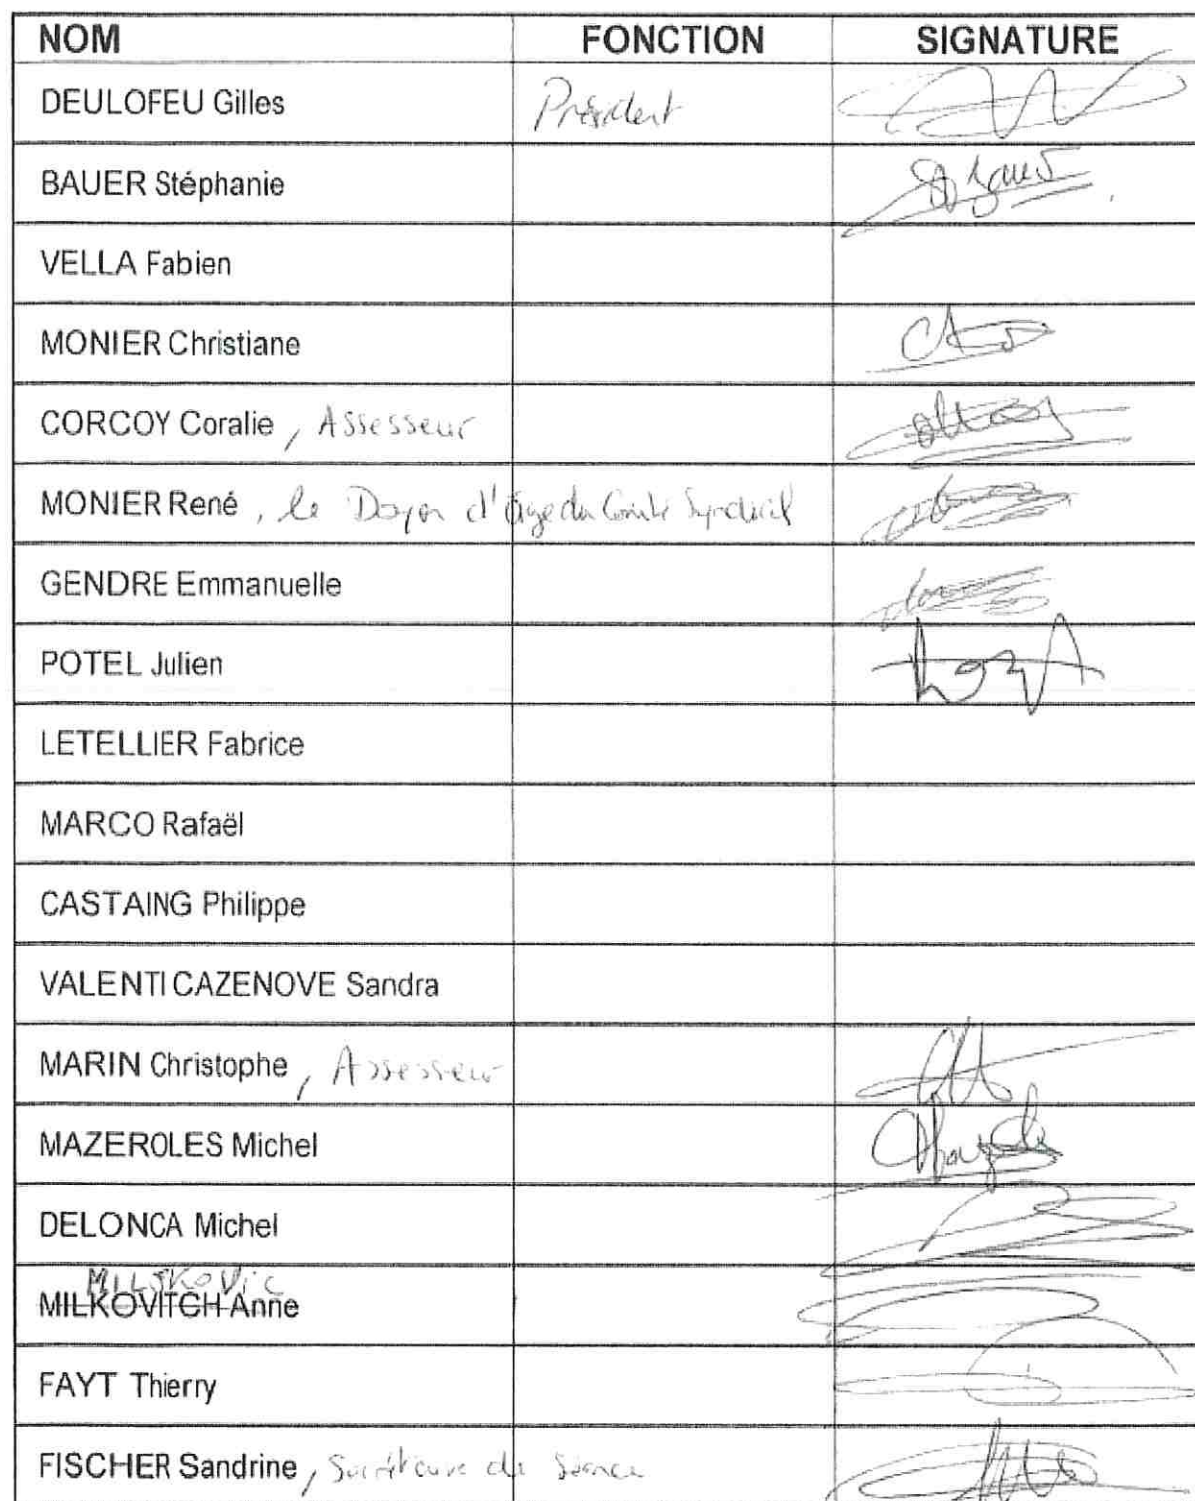 NOM FONCTION SIGNATURE
DEULOFEU Gilles Président
BAUER Stéphanie
VELLA Fabien
MONIER Christiane
CORCOY Coralie, Assesseur
MONIER René, le Doyen d'âge du Comité Syndical
GENDRE Emmanuelle
POTEL Julien
LETELLIER Fabrice
MARCO Rafaël
CASTAING Philippe
VALENTI CAZENOVE Sandra
MARIN Christophe, Assesseur
MAZEROLES Michel
DELONCA Michel
MILJKOVIC
MILKOVITCH Anne
FAYT Thierry
FISCHER Sandrine, Secrétaire de Séance